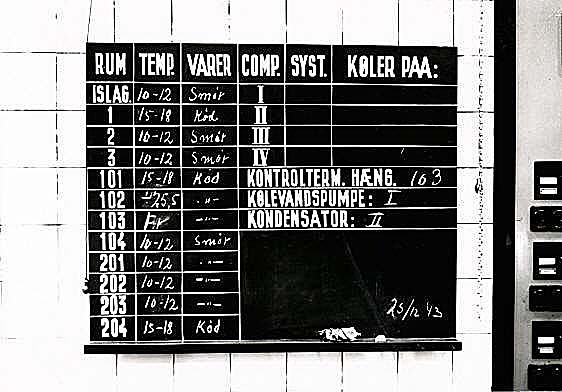 RUM TEMP. VARER COMP. SYST. KØLER PAA:
ISLAG. 10-12 Smör I
1 15-18 Köd II
2 10-12 Smör III
3 10-12 Smör IV
101 15-18 Köd KONTROLTERM. HÆNG. 103
102 -"- KØLEVANDSPUMPE: I
103 -"- KONDENSATOR: II
104 10-12 Smör
201 10-12 -"-
202 10-12 -"-
203 10-12 -"-
204 15-18 Köd
25/12 43